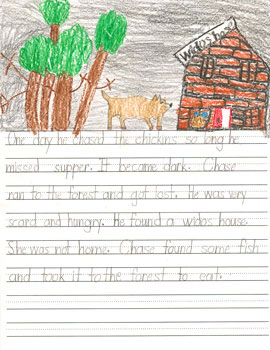 Widos house
One day he chased the chickins so long he
missed supper. It became dark. Chase
ran to the forest and got lost. He was very
scard and hungry. He found a widos house.
She was not home. Chase found some fish
and took it to the forest to eat.